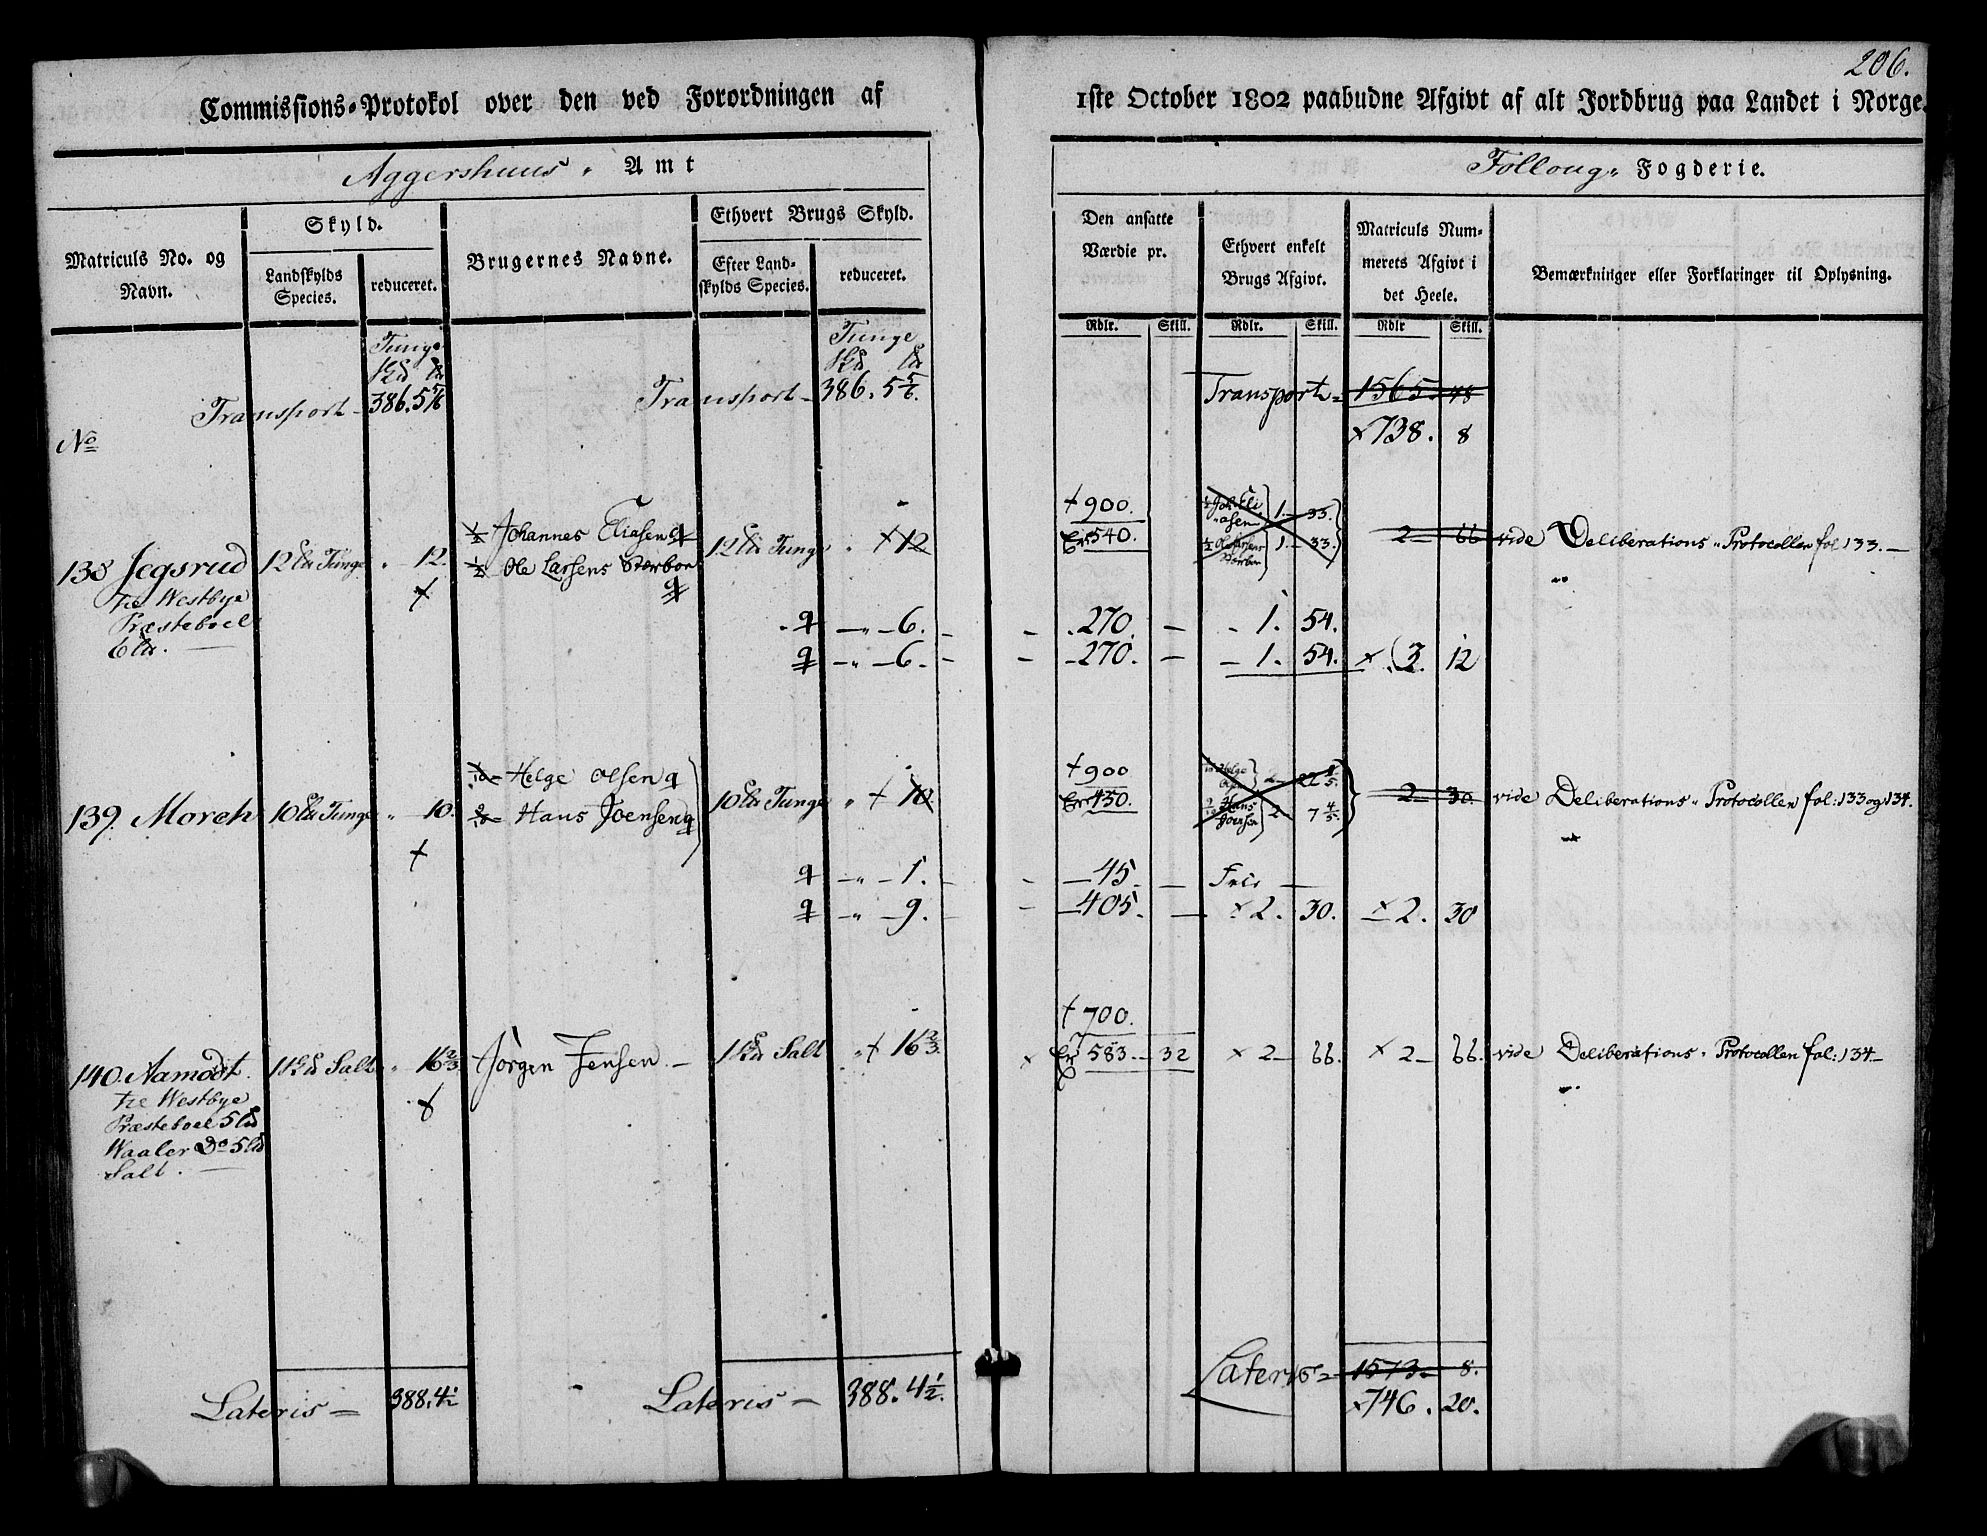 206.
Commissions-Protokol over den ved Forordningen af 1ste October 1802 paabudne Afgivt af alt Jordbrug paa Landet i Norge.
Aggershuus Amt
Folloug Fogderie.
Matriculs No. og Navn.
Skyld.
Landskylds Species.
reduceret.
Brugernes Navne.
Ethvert Brugs Skyld.
Efter Landskylds Species.
reduceret.
Den ansatte Værdie pr.
Ethvert enkelt Brugs Afgivt.
Matriculs Nummerets Afgivt i det Heele.
Bemærkninger eller Forklaringer til Oplysning.
Rdlr. Skill. Rdlr. Skill. Rdlr Skill.
Tunge
Tunge
Transport 386. 5 5/6
Transport 386. 5 5/6.
Transport 1565. 48
738. 8
No
138 Jegsrud 12 Tunge 12.
til Westbye
Præsteboel
1/2 Johannes Eliasen
1/2 Ole Larsens
12 Tunge 12
900.
540.
1. 33.
1. 33.
2 66
vide Deliberations Protocollen fol 133.
6. 270. 1. 54.
6. 270. 1. 54. 3. 12
139. Moreh 10 Tunge 10.
1/10 Helge Olsen
9/10 Hans Joensen
10 Tunge 10.
900
450.
1/10 Helge Olsen
9/10 Hans Joensen 2 7 4/5
2 30
vide Deliberations Protocollen fol: 133 og 134.
1. 45. Frie
9. 405. 2. 30. 2. 30
140. Aamodt 1 Salt 16 2/3
til Westbye
Præsteboel 5
Waaler Do 5
Salt.
Jörgen Jensen
1 Salt 16 2/3.
700.
583. 32 2 66. 2 66.
vide Deliberations Protocollen fol: 134
Lateris 388. 4 1/2
Lateris 388. 4 1/2.
Lateris 1573 8.
746. 20.